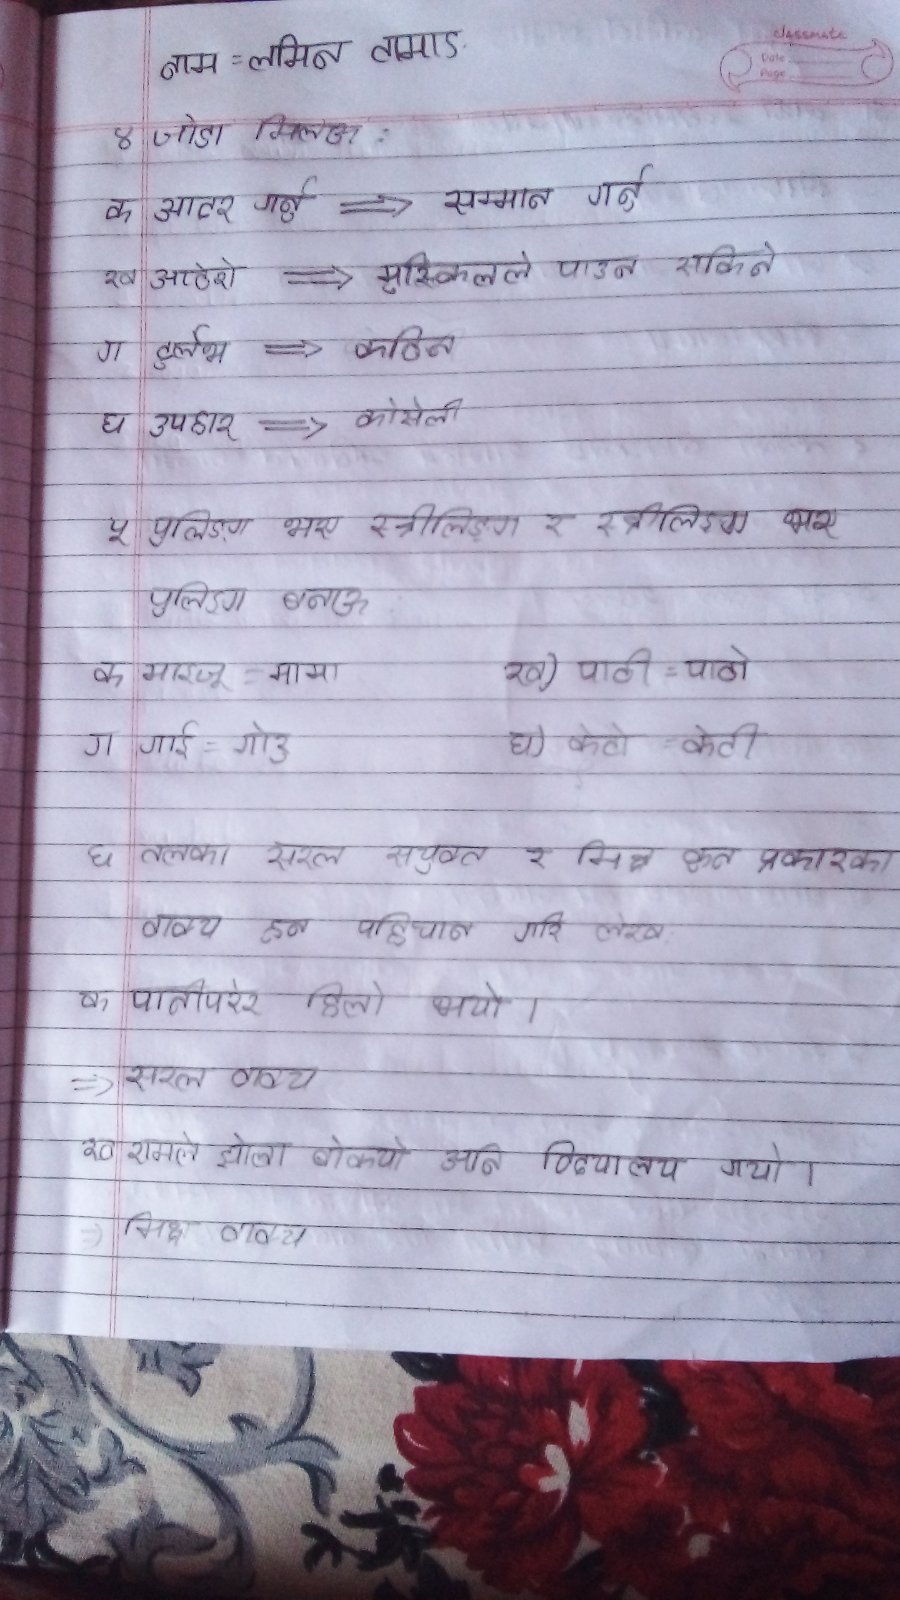 classmate
Date
Page
नाम = लमिन तामाङ
४ जोडा मिलाऊ :
क आदर गर्नु ⇒ सम्मान गर्नु
ख अठेरो ⇒ मुस्किलले पाउन सकिने
ग दुर्लभ ⇒ कठिन
घ उपहार ⇒ कोसेली
५ पुलिङ्ग भए स्त्रीलिङ्ग र स्त्रीलिङ्ग भए
पुलिङ्ग बनाऊ
क माइजू = मामा ख) पाठी = पाठो
ग गाई = गोरु घ) केटो = केटी
६ तलका सरल संयुक्त र मिश्र कुन प्रकारका
वाक्य हुन पहिचान गरि लेख
क पानीपरेर हिलो भयो ।
⇒ सरल वाक्य
ख रामले झोला बोक्यो अनि विद्यालय गयो ।
⇒ मिश्र वाक्य